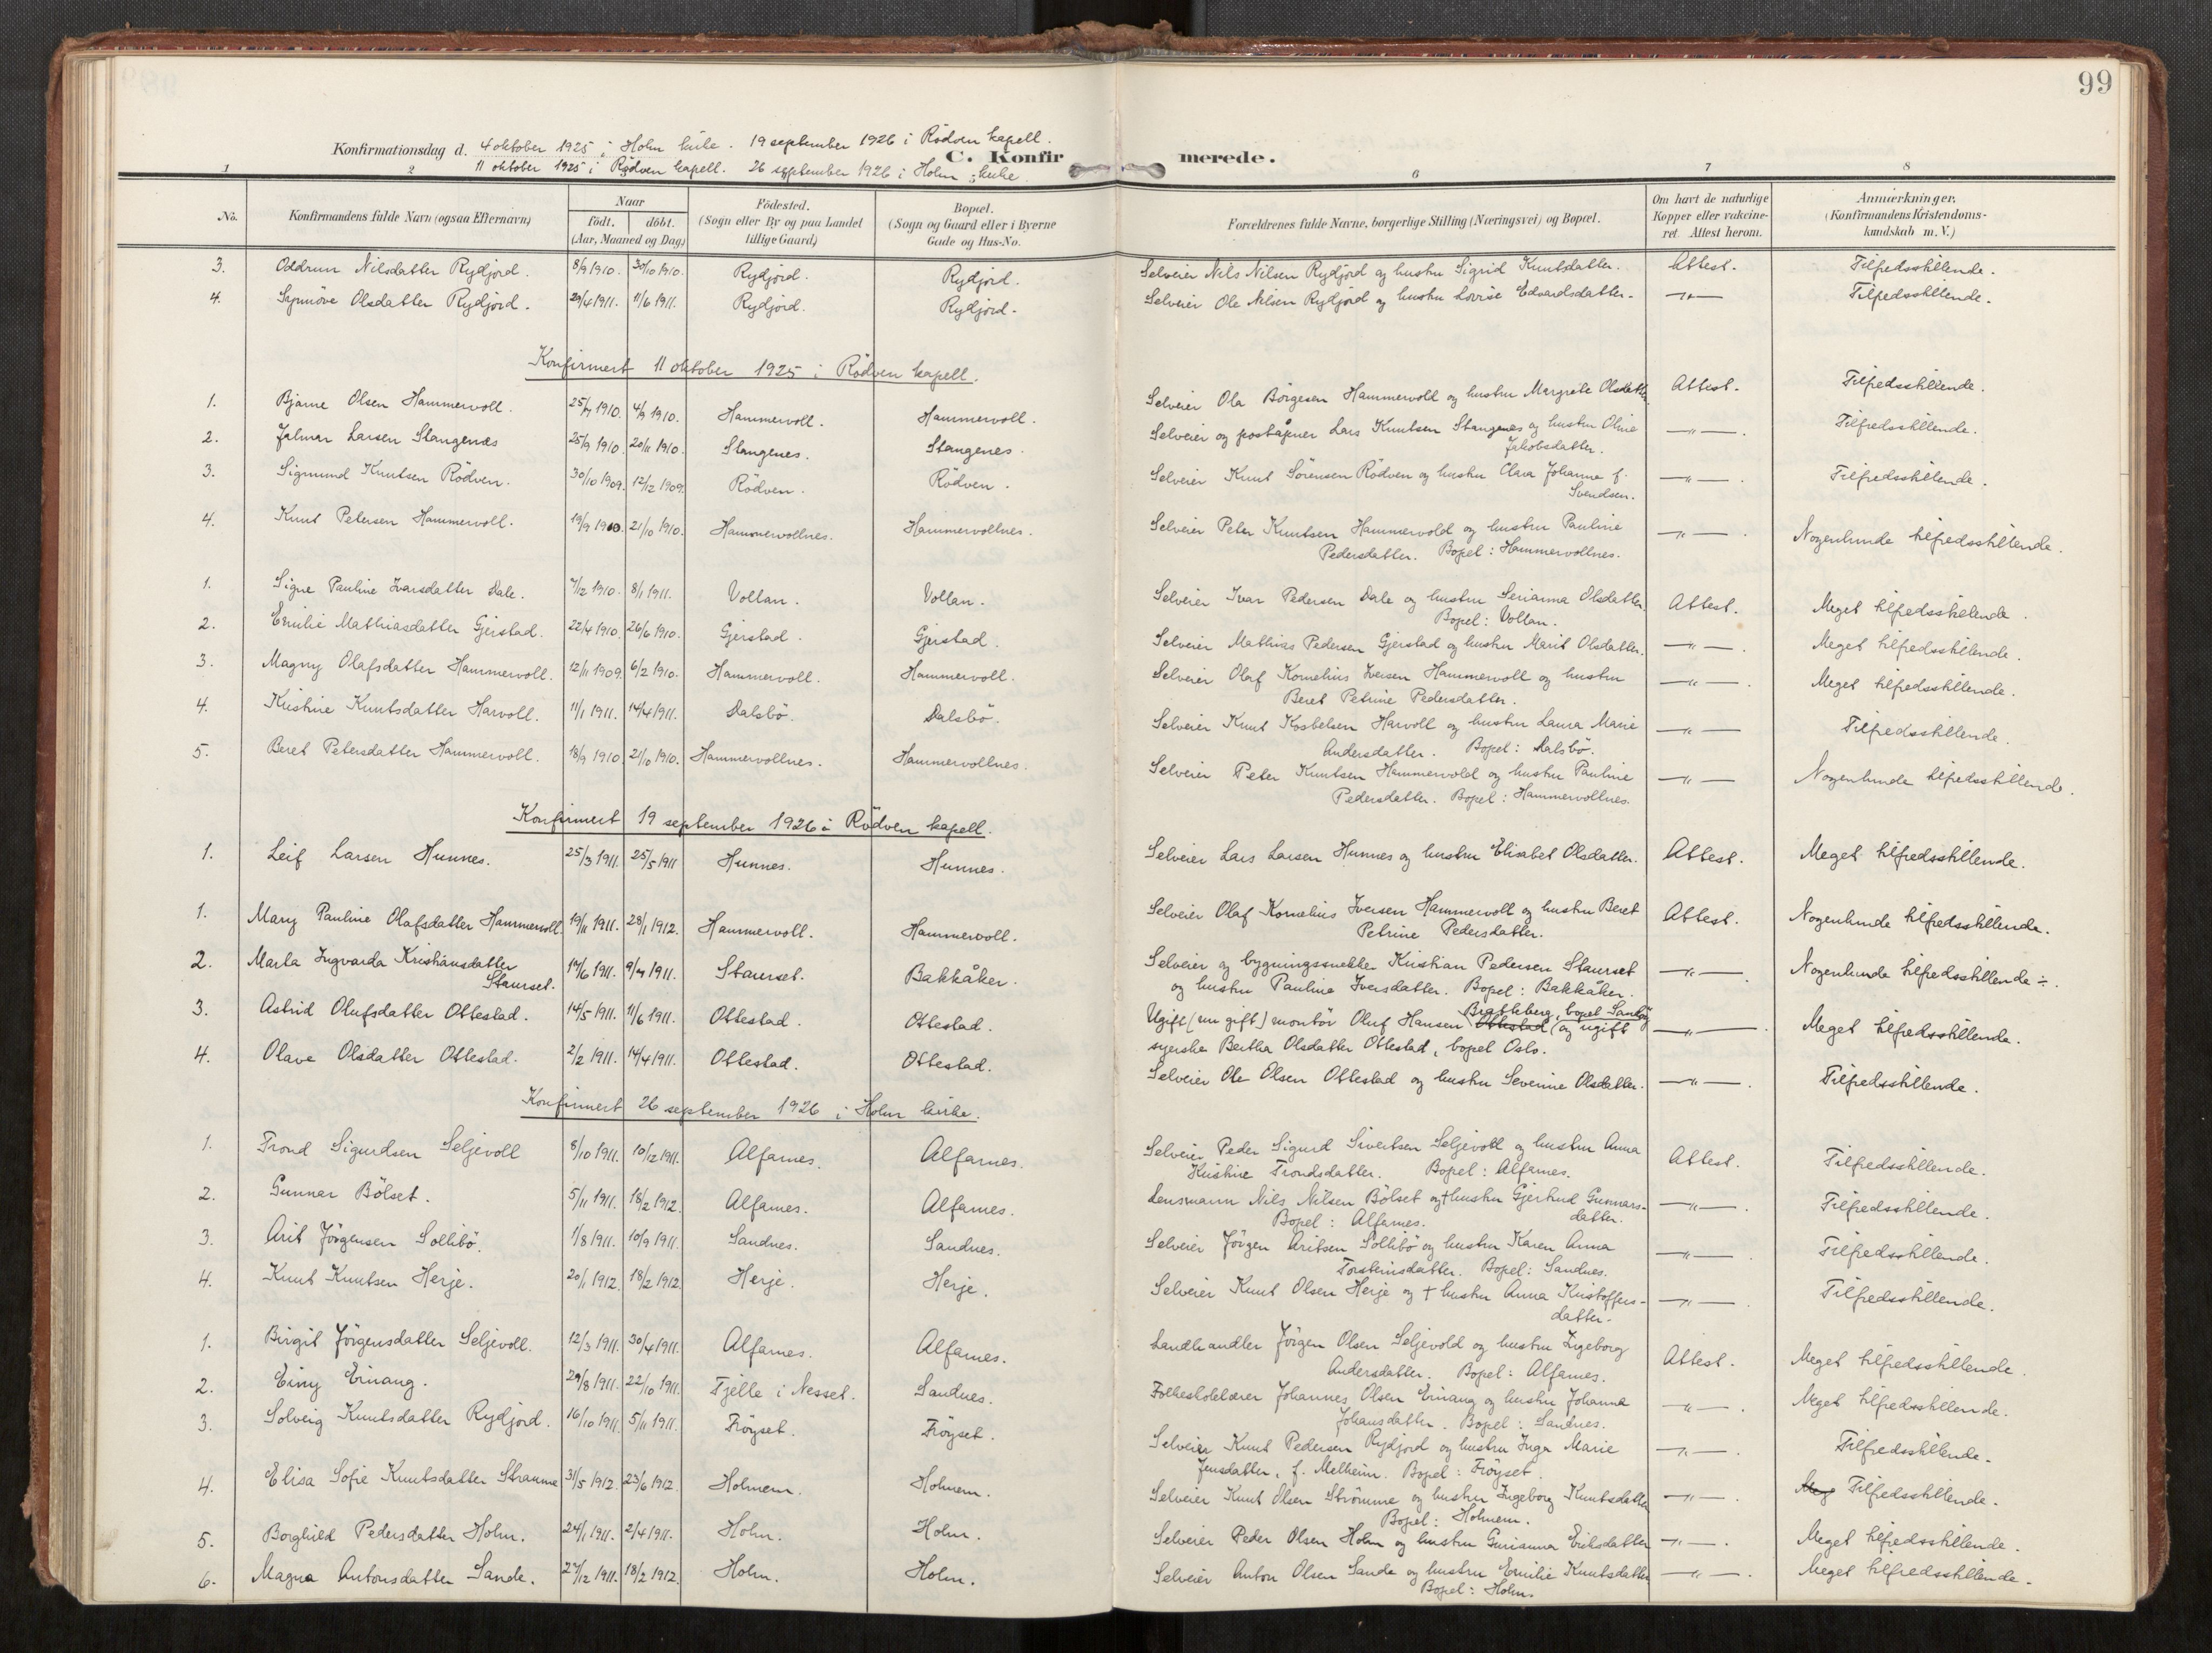 99
Konfirmationsdag d. 4 oktober 1925 i Holm kirke. 19 september 1926 i Rödven kapell.
11 oktober 1925 i Rödven kapell. 26 september 1926 i Holm kirke
C. Konfirmerede.
1 2 6 7 8
No. Konfirmandens fulde Navn (ogsaa Efternavn) Naar födt. döbt. (Aar, Maaned og Dag) Födested. (Sogn eller By og paa Landet tillige Gaard) Bopæl. (Sogn og Gaard eller i Byerne Gade og Hus-No. Forældrenes fulde Navne, borgerlige Stilling (Næringsvei) og Bopæl. Om havt de naturlige Kopper eller vakcineret. Attest herom. Anmærkninger. (Konfirmandens Kristendomskundskab m. V.)
3. Oddrun Nilsdatter Rydjord. 8/9 1910. 30/10 1910. Rydjord. Rydjord. Selveier Nils Nilsen Rydjord og hustru Sigrid Knutsdatter. Attest. Tilfredsstillende.
4. Synnöve Olsdatter Rydjord. 29/4 1911. 11/6 1911. Rydjord. Rydjord. Selveier Ole Nilsen Rydjord og hustru Lovise Edvardsdatter. —"— Tilfredsstillende.
Konfirmert 11 oktober 1925 i Rödven kapell.
1. Bjarne Olsen Hammervoll. 25/7 1910. 4/9 1910. Hammervoll. Hammervoll. Selveier Ola Börgesen Hammervold og hustru Margrete Olsdatter. Attest. Tilfredsstillende.
2. Jalmar Larsen Stangenes 25/9 1910. 20/11 1910. Stangenes. Stangenes. Selveier og poståpner Lars Knutsen Stangenes og hustru Oline
Jakobsdatter. —"—. Tilfredsstillende.
3. Sigmund Knutsen Rödven. 30/10 1909. 12/12 1909. Rödven. Rödven. Selveier Knut Sörensen Rödven og hustru Clara Johanne f.
Svendsen. —"—. Tilfredsstillende.
4. Knut Petersen Hammervoll. 19/9 1910. 21/10 1910. Hammervollnes. Hammervollnes. Selveier Peter Knutsen Hammervold og hustru Pauline
Pedersdatter. Bopel: Hammervollnes. —"—. Nogenlunde tilfredsstillende.
1. Signe Pauline Ivarsdatter Dale. 7/12 1910. 8/1 1911. Vollan. Vollan. Selveier Ivar Pedersen Dale og hustru Serianna Olsdatter.
Bopel: Vollan. Attest. Meget tilfredsstillende.
2. Emilie Mathiasdatter Gjerstad. 22/4 1910. 26/6 1910. Gjerstad. Gjerstad. Selveier Mathias Pedersen Gjerstad og hustru Marit Olsdatter. —"—. Meget tilfredsstillende.
3. Magny Olafsdatter Hammervoll. 12/11 1909. 6/2 1910. Hammervoll. Hammervoll. Selveier Olaf Kornelius Iversen Hammervoll og hustru
Beret Petrine Pedersdatter. —"—. Meget tilfredsstillende.
4. Kristine Knutsdatter Harvoll. 11/1 1911. 14/4 1911. Dalsbö. Dalsbö. Selveier Knut Hosbelsen Harvoll og hustru Laura Marie
Andersdatter. Bopel: Dalsbö. —"— Tilfredsstillende.
5. Beret Petersdatter Hammervoll. 18/9 1910. 21/10 1910. Hammervollnes. Hammervollnes. Selveier Peter Knutsen Hammervold og hustru Pauline
Pedersdatter. Bopel: Hammervollnes. —"— Nogenlunde tilfredsstillende.
Konfirmert 19 september 1926 i Rödven kapell.
1. Leif Larsen Hunnes. 25/3 1911. 25/5 1911 Hunnes. Hunnes. Selveier Lars Larsen Hunnes og hustru Elisabet Olsdatter. Attest. Meget tilfredsstillende.
1. Mary Pauline Olafsdatter Hammervoll 19/11 1911. 28/1 1912. Hammervoll. Hammervoll. Selveier Olaf Kornelius Iversen Hammervoll og hustru Beret
Petrine Pedersdatter. Attest. Nogenlunde tilfredsstillende.
2. Marta Ingvarda Kristiansdatter
Staurset. 17/6 1911. 9/7 1911. Staurset. Bakkåker. Selveier og bygningssnekker Kristian Pedersen Staurset
og hustru Pauline Iversdatter. Bopel: Bakkåker. —"—. Nogenlunde tilfredsstillende ÷.
3. Astrid Olufsdatter Ottestad. 14/5 1911. 11/6 1911. Ottestad. Ottestad. Bratteberg, bopel
Ugift (nu gift) montör Oluf Hansen Ottestad (og ugift
syerske Bertha Olsdatter Ottestad, bopel Oslo. —"—. Meget tilfredsstillende.
4. Olave Olsdatter Ottestad. 2/2 1911. 14/4 1911. Ottestad. Ottestad. Selveier Ole Olsen Ottestad og hustru Severine Olsdatter. —"—. Tilfredsstillende.
Konfirmert 26 september 1926 i Holm kirke.
1. Trond Sigurdsen Seljevoll 8/10 1911. 10/12 1911. Alfarnes. Alfarnes. Selveier Peder Sigurd Sivertsen Seljevoll og hustru Anna
Kristine Trondsdatter. Bopel: Alfarnes. Attest. Tilfredsstillende.
2. Gunnar Bölset. 5/11 1911. 18/2 1912. Alfarnes. Alfarnes. Lensmann Nils Nilsen Bölset og † hustru Gjertrud Gunnars-
Bopel: Alfarnes. datter. —"—. Tilfredsstillende.
3. Arit Jörgensen Sollibö. 1/8 1911. 10/9 1911. Sandnes. Sandnes. Selveier Jörgen Aritsen Sollibö og hustru Karen Anna
Torsteinsdatter. Bopel: Sandnes. —"— Tilfredsstillende.
4. Knut Knutsen Herje. 20/1 1912. 18/2 1912 Herje. Herje. Selveier Knut Olsen Herje og † hustru Anna Kristoffers-
datter. —"—. Tilfredsstillende.
1. Birgit Jörgensdatter Seljevoll. 12/3 1911. 30/4 1911. Alfarnes. Alfarnes. Landhandler Jörgen Olsen Seljevold og hustru Ingeborg
Andersdatter. Bopel: Alfarnes. Attest. Meget tilfredsstillende.
2. Einy Einang. 29/8 1911. 22/10 1911. Tjelle i Nesset. Sandnes. Folkeskolelærer Johannes Olsen Einang og hustru Johanna
Johansdatter. Bopel: Sandnes. —"—. Meget tilfredsstillende.
3. Solveig Knutsdatter Rydjord. 16/10 1911. 5/11 1911. Fröyset. Fröyset. Selveier Knut Pedersen Rydjord og hustru Inga Marie
Jensdatter, f. Melheim. Bopel: Fröyset. —"—. Tilfredsstillende.
4. Elisa Sofie Knutsdatter Straume 31/5 1912. 23/6 1912. Holmem. Holmem. Selveier Knut Olsen Strömme og hustru Ingeborg Knutsdatter
Bopel: Holmem. —"—. Meg Tilfredsstillende.
5. Borghild Pedersdatter Holm. 24/1 1911. 2/4 1911. Holm. Holm. Selveier Peder Olsen Holm og hustru Gurianna Eriksdatter —"—. Meget tilfredsstillende.
6. Magna Antonsdatter Sande. 27/12 1911. 18/2 1912. Holm. Holm. Selveier Anton Olsen Sande og hustru Emilie Knutsdatter
Bopel: Holm. —"—. Meget tilfredsstillende.